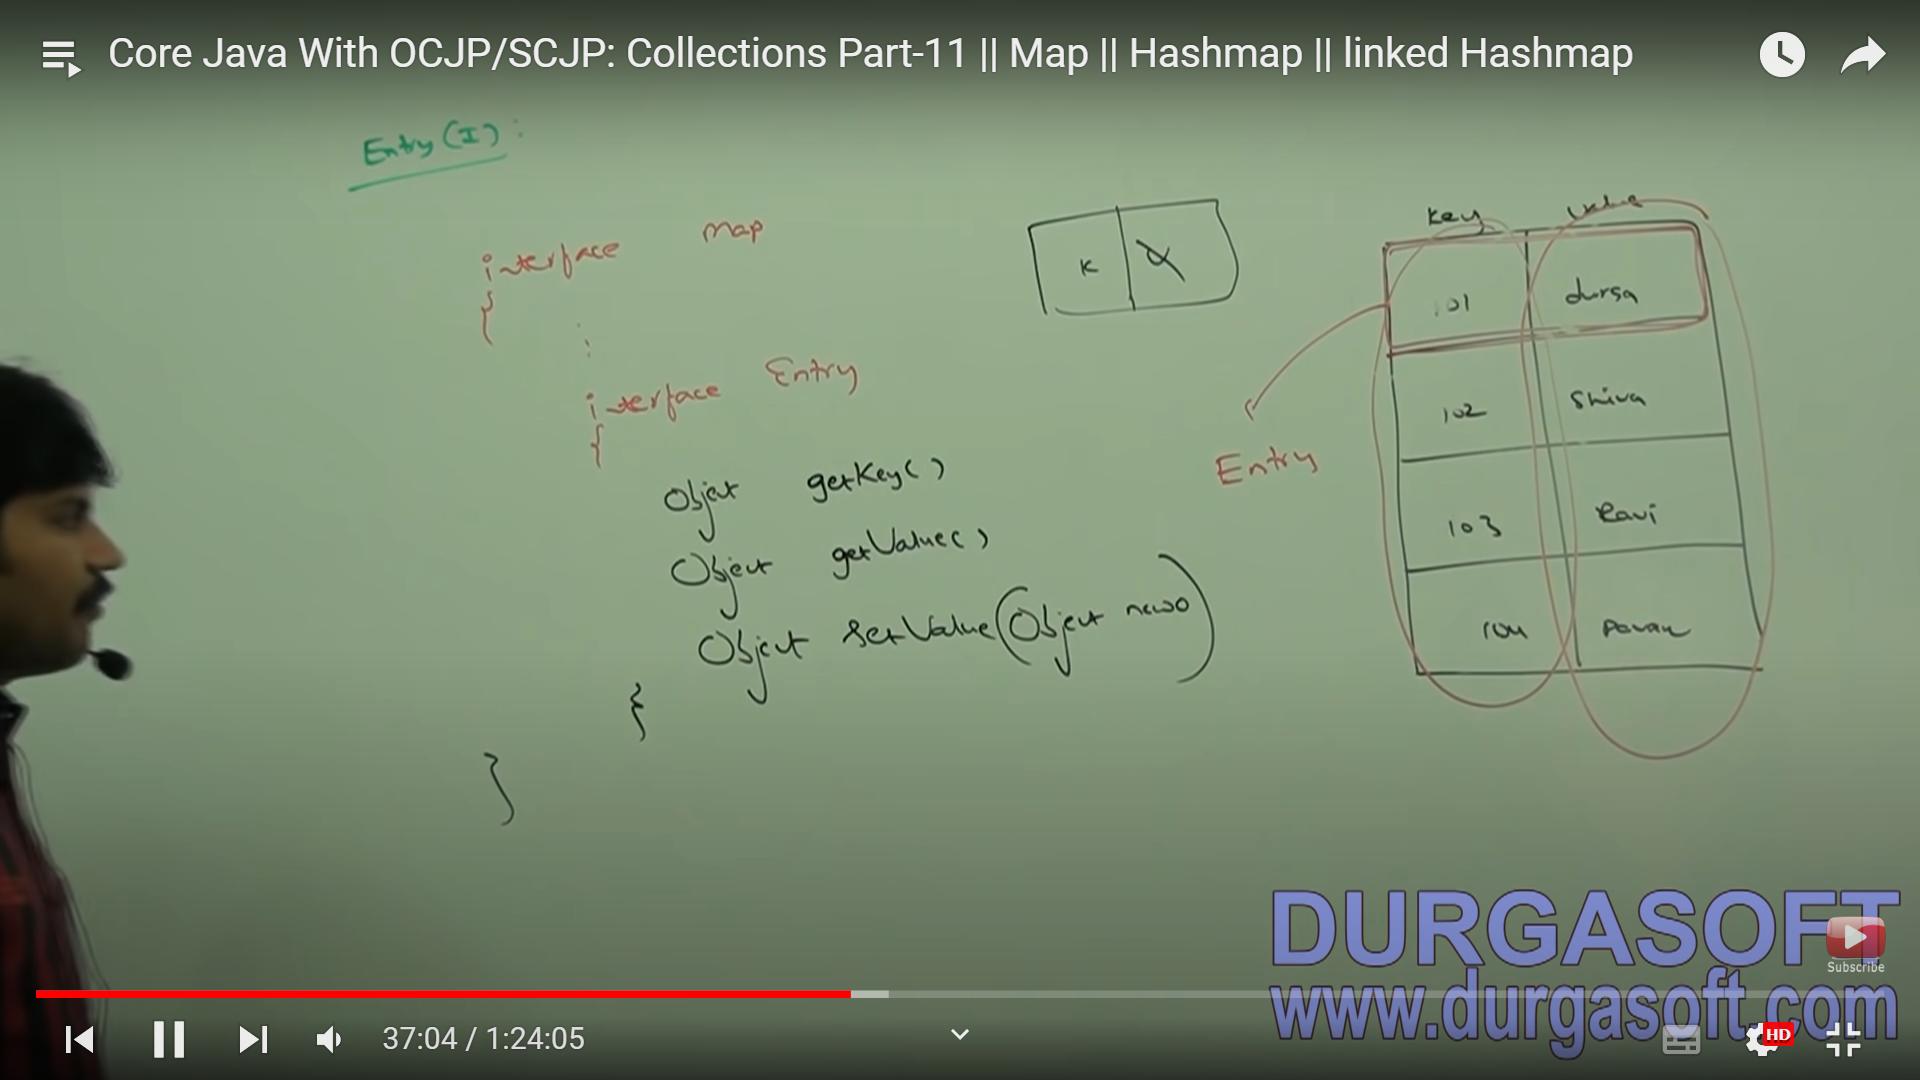 Core Java With OCJP/SCJP: Collections Part-11 || Map || Hashmap || linked Hashmap
Entry(I):
interface Map
{
:
interface Entry
{
Object getKey()
Object getValue()
Object setValue(Object newo)
}
}
K
Entry
Key Value
101 durga
102 Shiva
103 Ravi
104 Pavan
DURGASOFT
Subscribe
www.durgasoft.com
37:04 / 1:24:05
HD